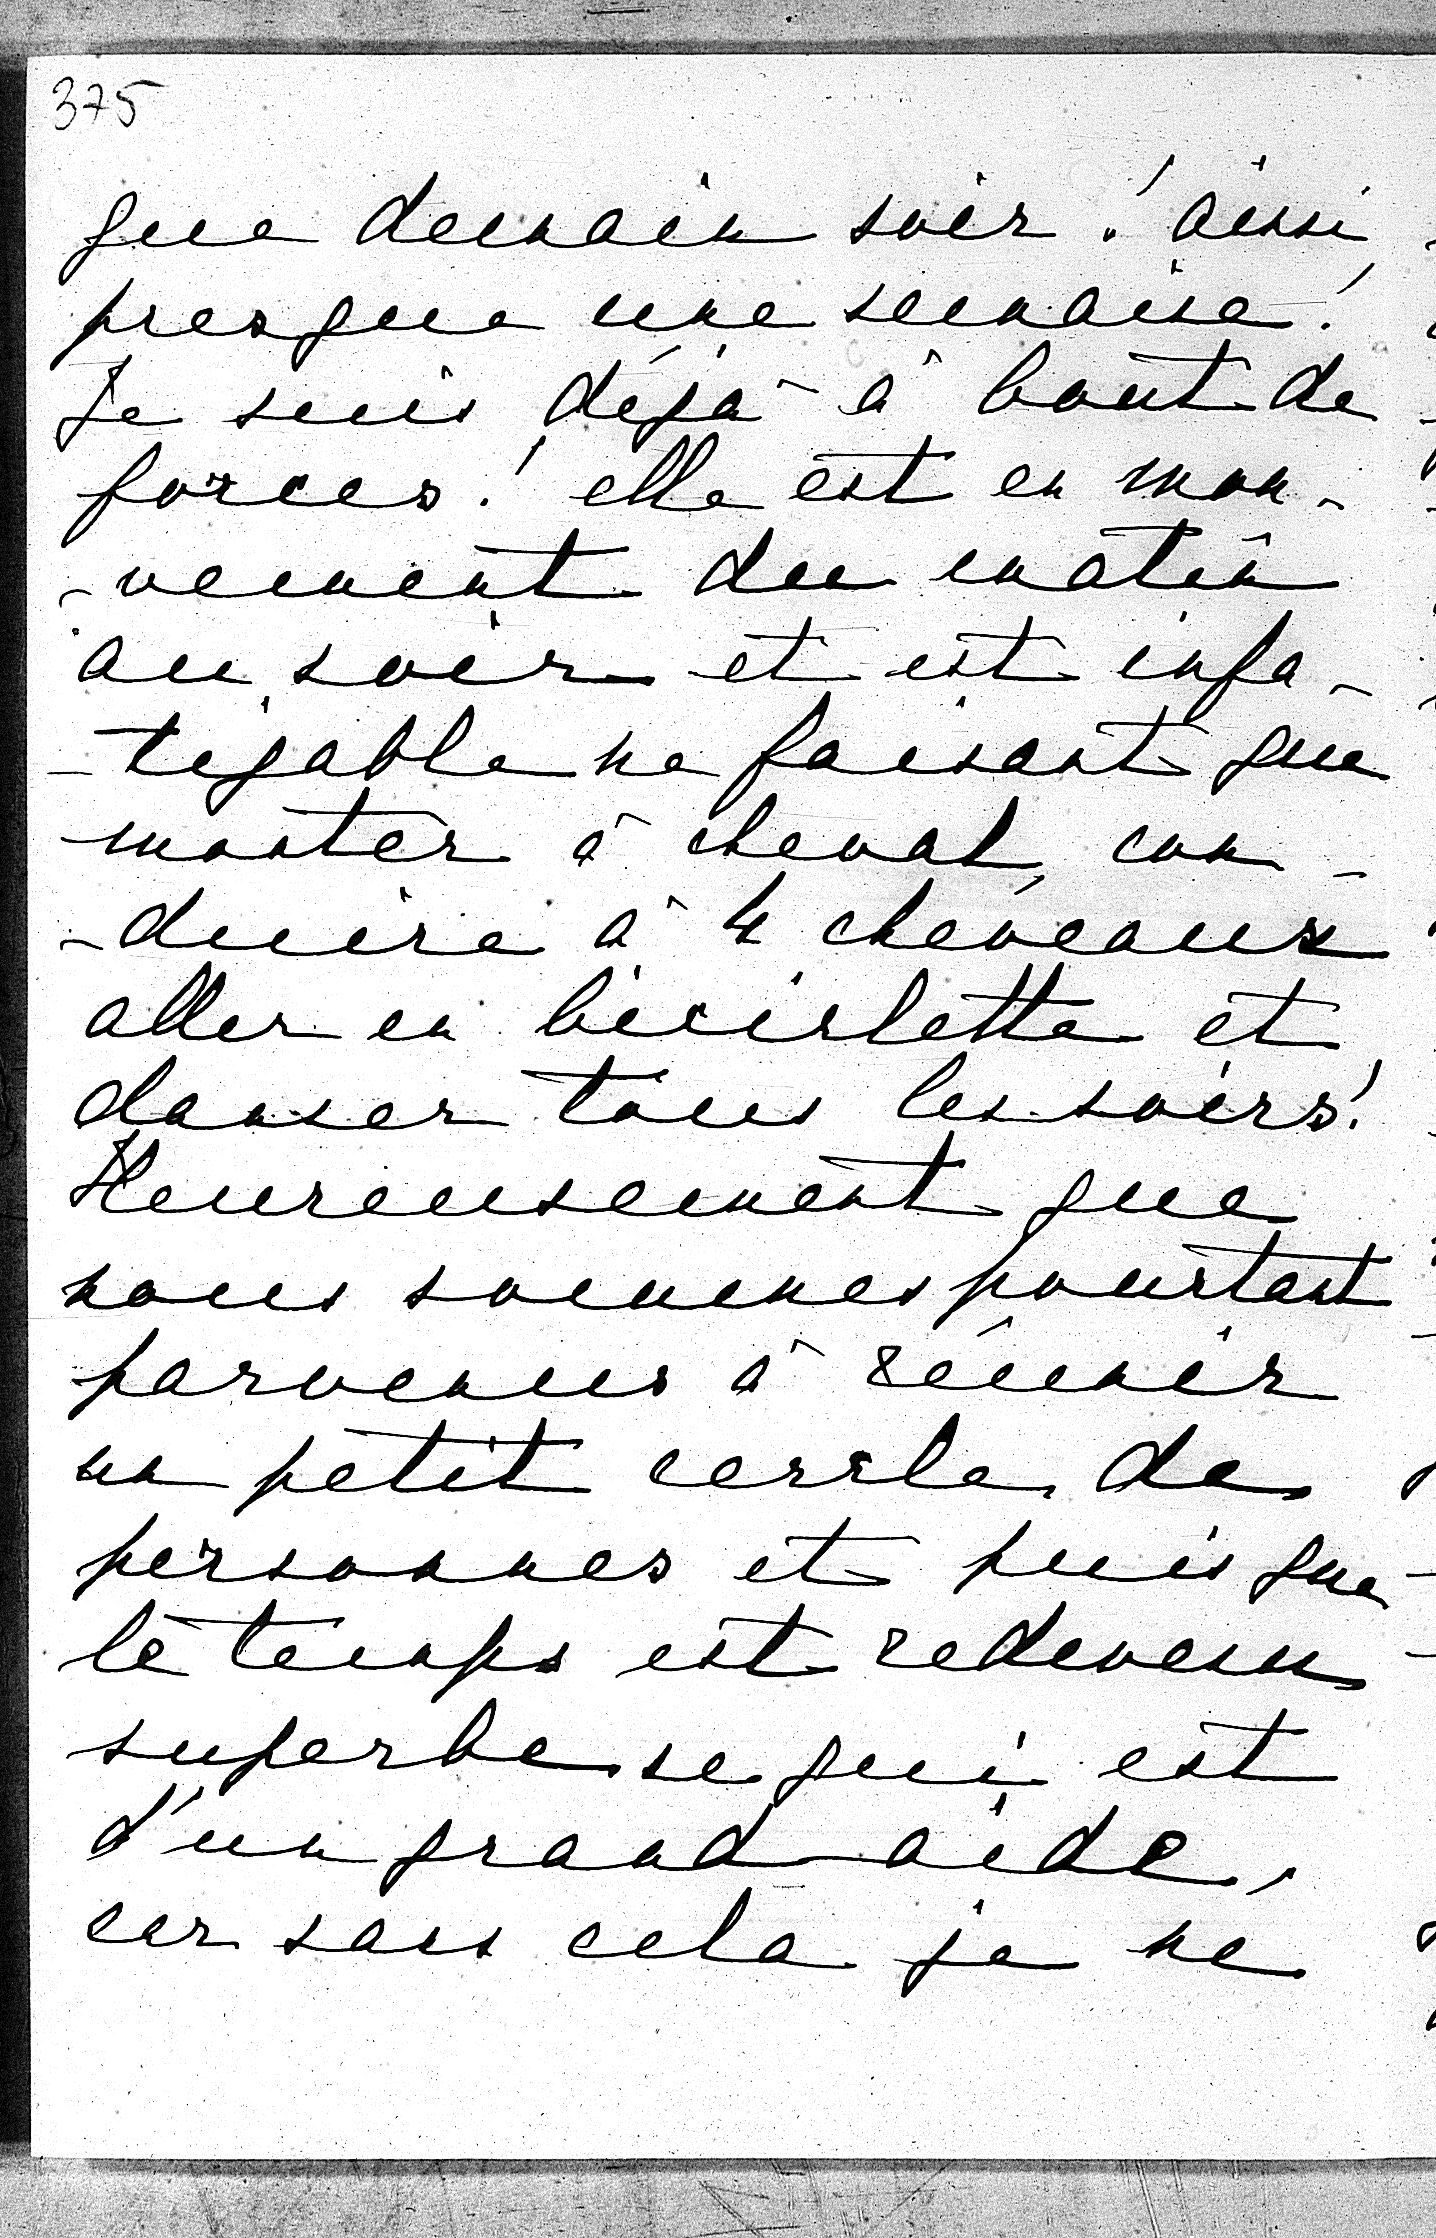 375
que demain soir! ainsi
presque une semaine!
Je suis déjà à bout de
forces! elle est en mou-
-vement du matin
au soir et est infa-
-tigable ne faisant que
monter à cheval, con-
-duire à 4 cheveaux
aller en bicirlette et
danser tous les soirs!
Heureusement que
nous sommes pourtant
parvenus à réunir
un petit cerrle de
personnes et puis que
le temps est redevenu
superbe se qui est
d'un grand aide,
cer sans cela je ne